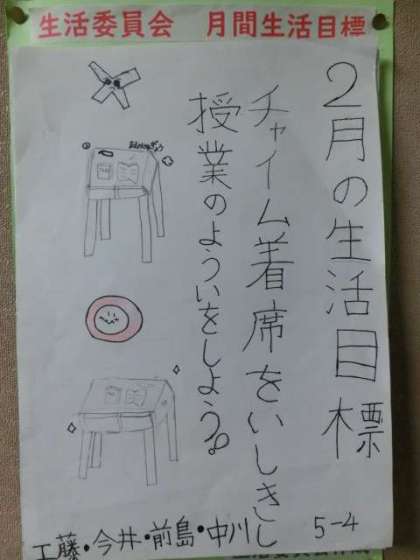 生活委員会 月間生活目標
2月の生活目標
チャイム着席をいしきし
授業のよういをしよう。
5-4
工藤・今井・前島・中川